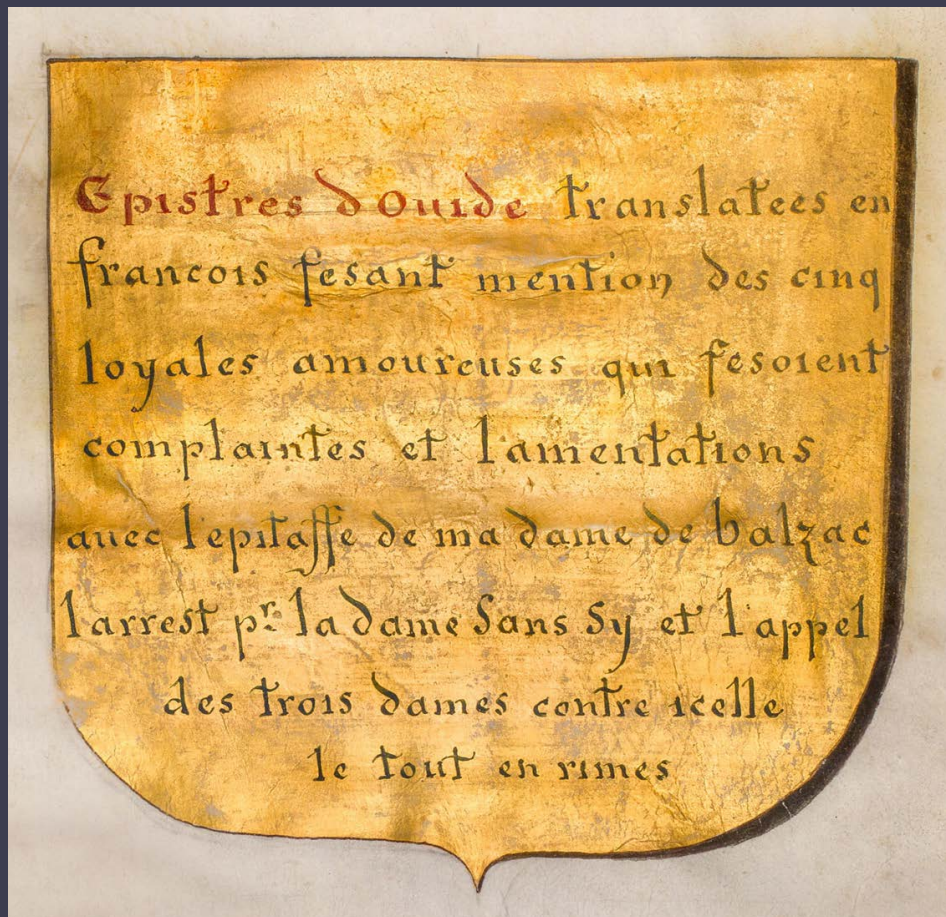 Epistres dOuide translatees en
francois fesant mention des cinq
loyales amoureuses qui fesoient
complaintes et lamentations
auec l'epitaffe de ma dame de balzac
l'arrest pr. la dame Sans Sy et l'appel
des trois dames contre icelle
le tout en rimes